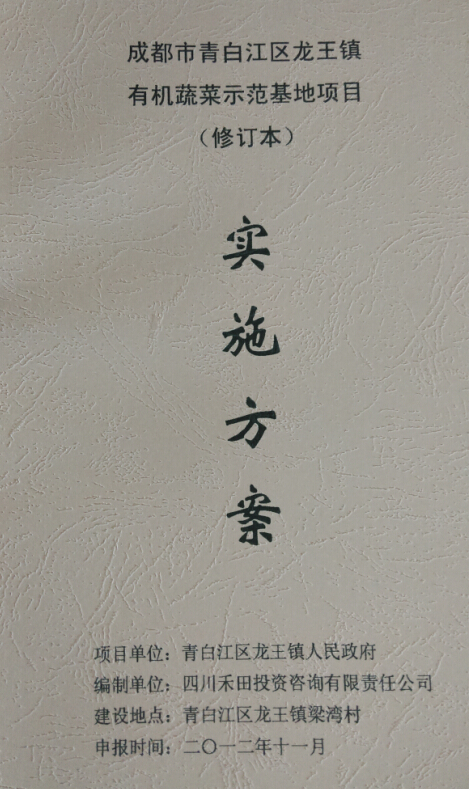 成都市青白江区龙王镇
有机蔬菜示范基地项目
（修订本）
实
施
方
案
项目单位：青白江区龙王镇人民政府
编制单位：四川禾田投资咨询有限责任公司
建设地点：青白江区龙王镇梁湾村
申报时间：二〇一二年十一月